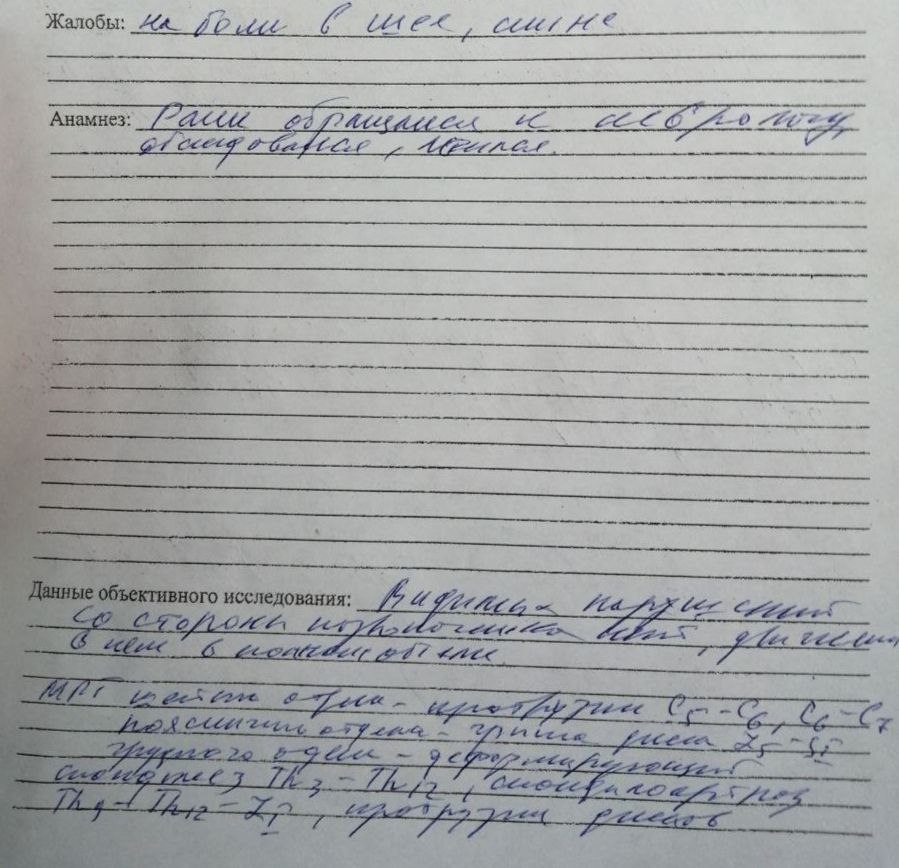 Жалобы: на боли в шее, спине
Анамнез: Ранее обращался к неврологу,
обследовался, лечился.
Данные объективного исследования: Видимых нарушений
со стороны позвоночника нет, движения
в нем в полном объеме.
МРТ шейного отдела - протрузии C5-C6, C6-C7
поясничн отдела - грыжа диска L5-SI
грудного отдела - деформирующий
спондилез Th3-Th12, спондилоартроз
Th9-Th12-LI, протрузии дисков